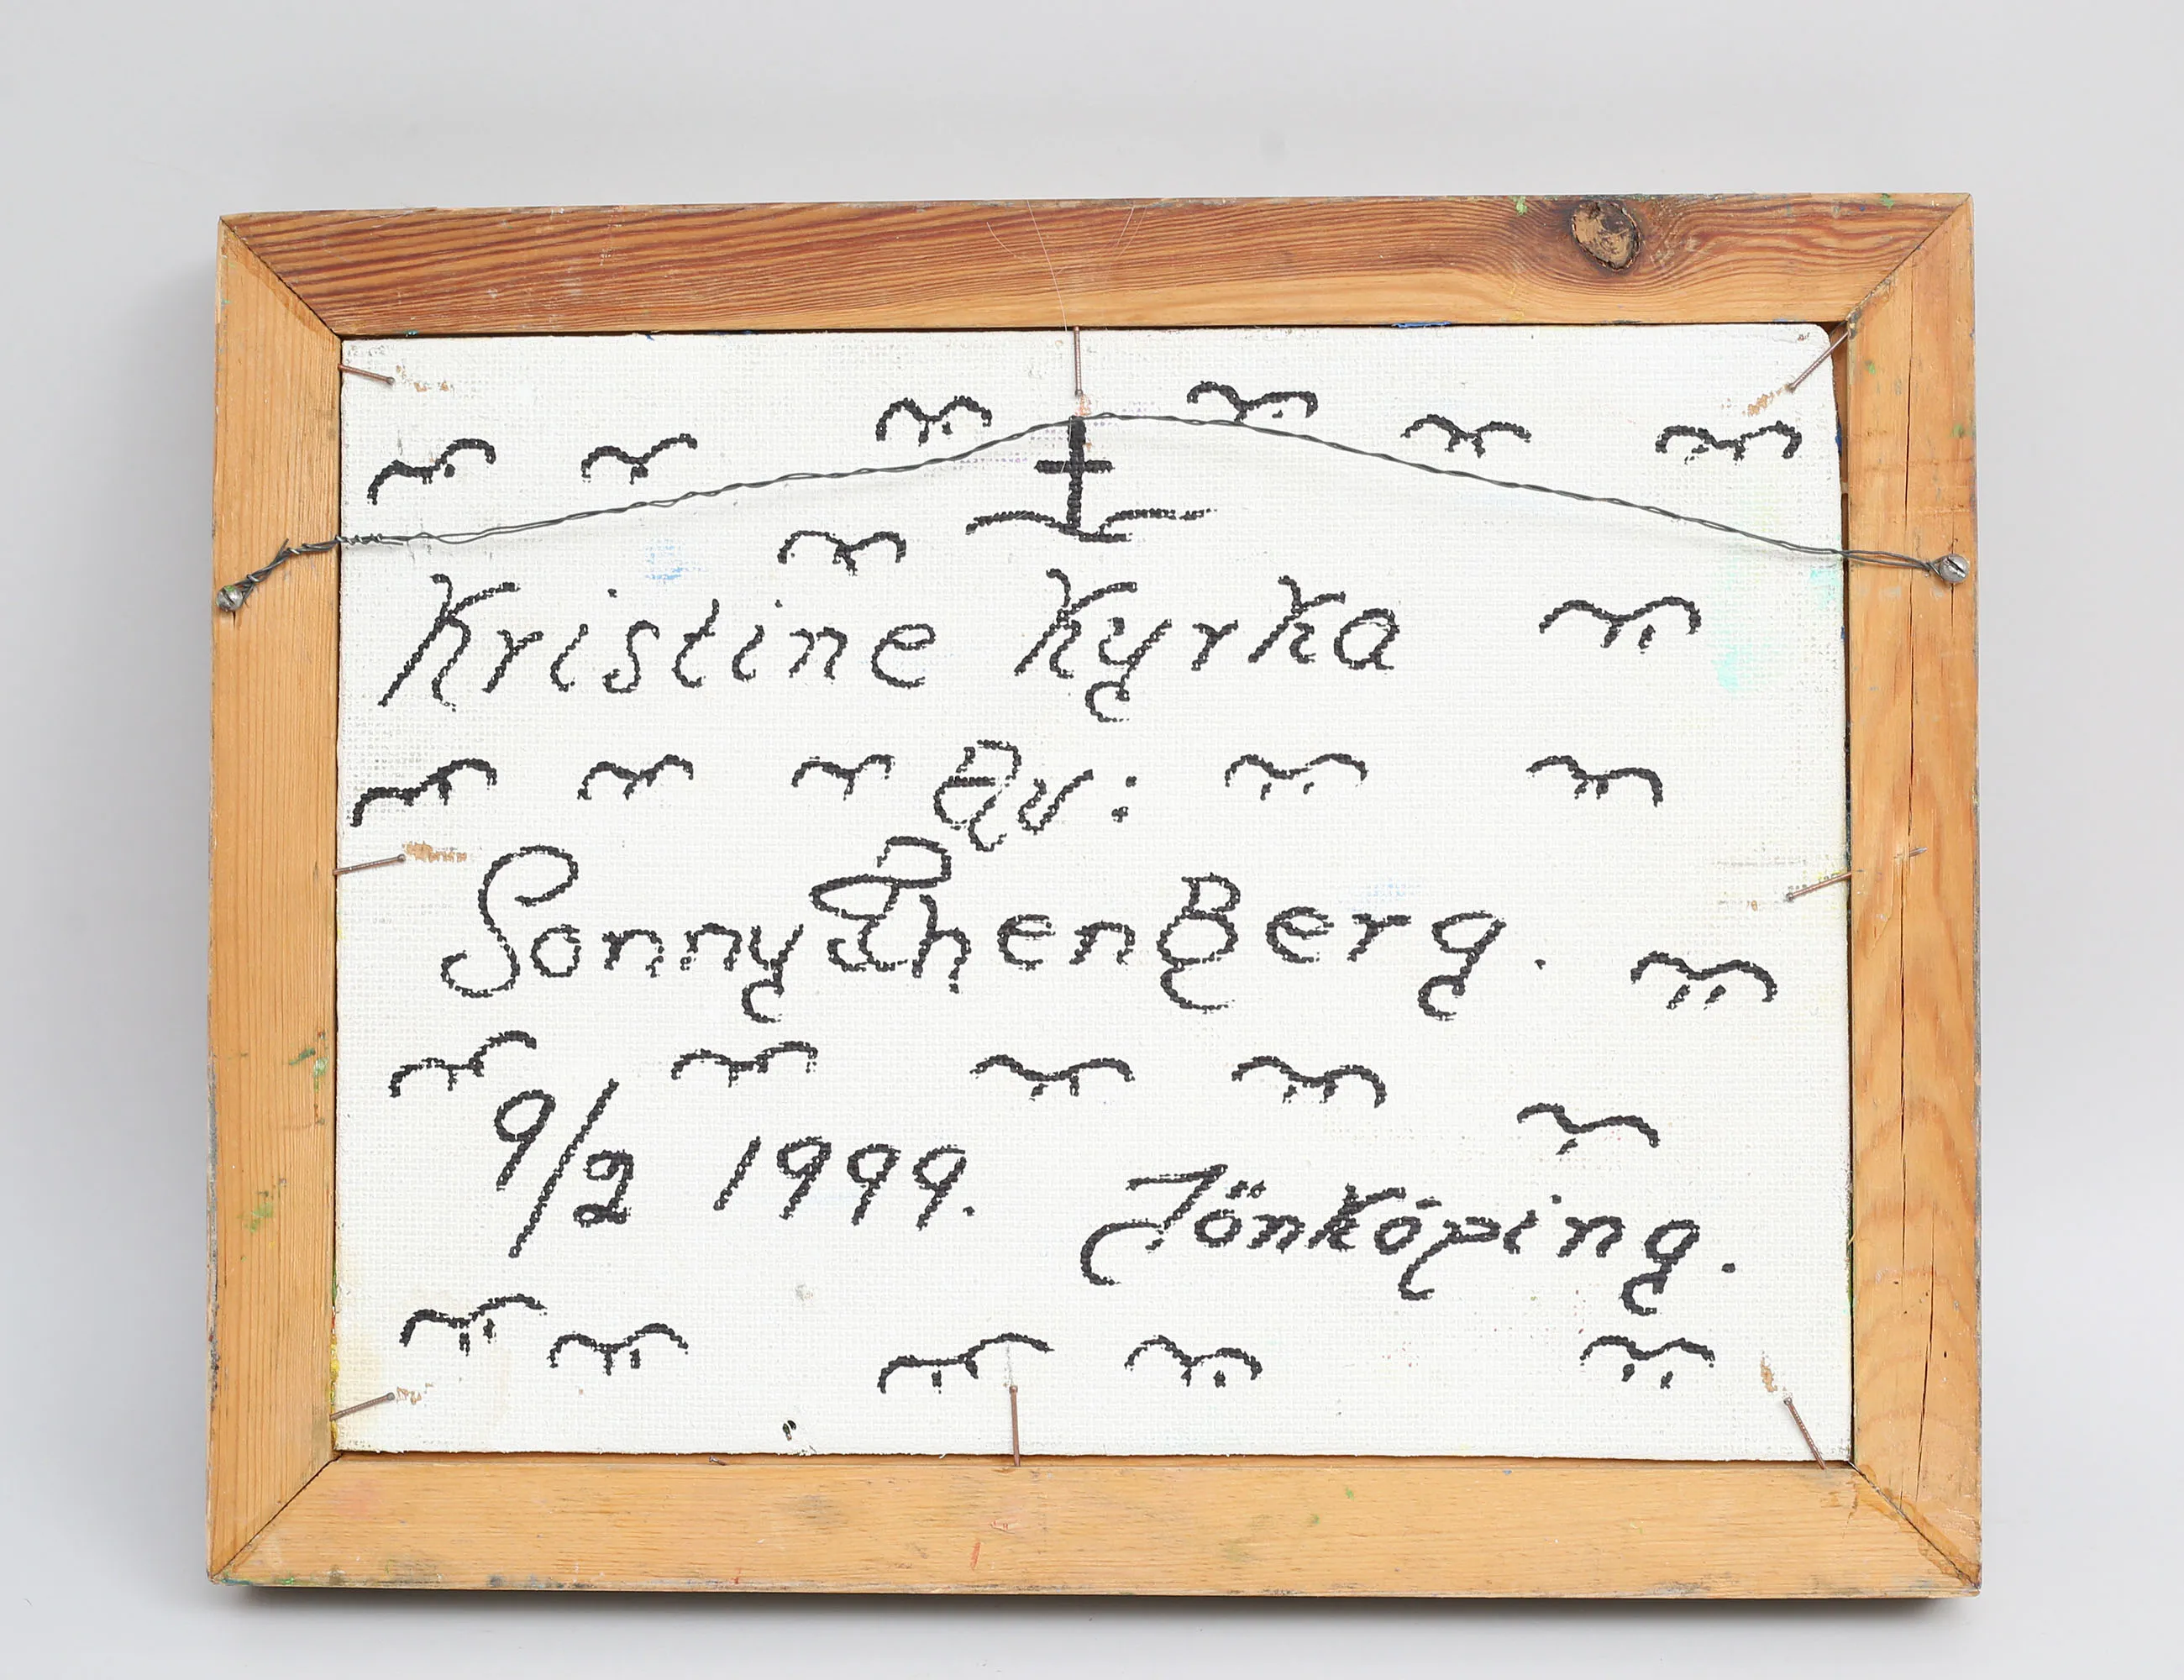 Kristine Kyrka
Av:
Sonny ThenBerg.
9/2 1999. Jönköping.